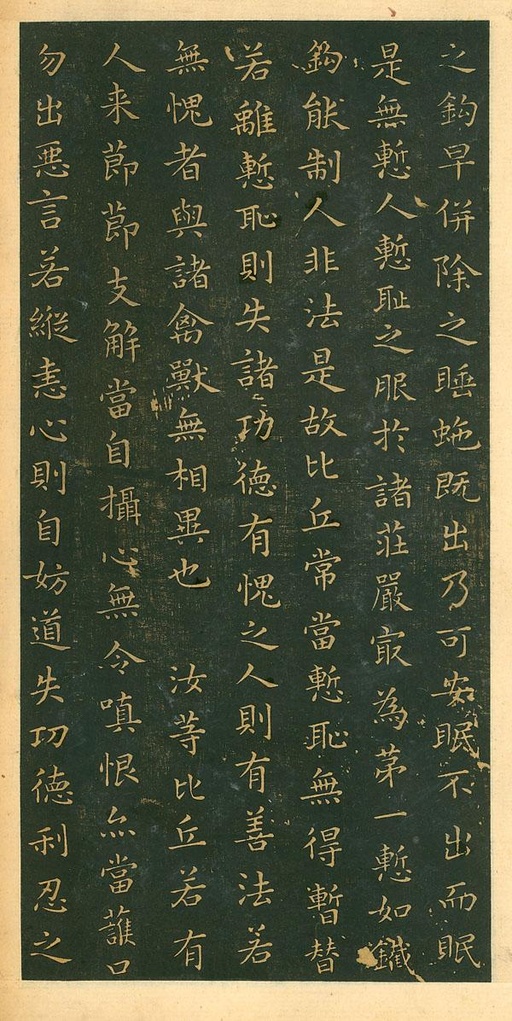 之鈎早併除之睡虵既出乃可安眠不出而眠
是無慙人慙耻之服於諸莊嚴㝡為苐一慙如鐵
鈎能制人非法是故比丘常當慙恥無得暫替
若離慙恥則失諸功德有愧之人則有善法若
無愧者與諸禽獸無相異也 汝等比丘若有
人来莭莭支解當自攝心無令嗔恨亦當護口
勿出惡言若縱恚心則自妨道失功德利忍之